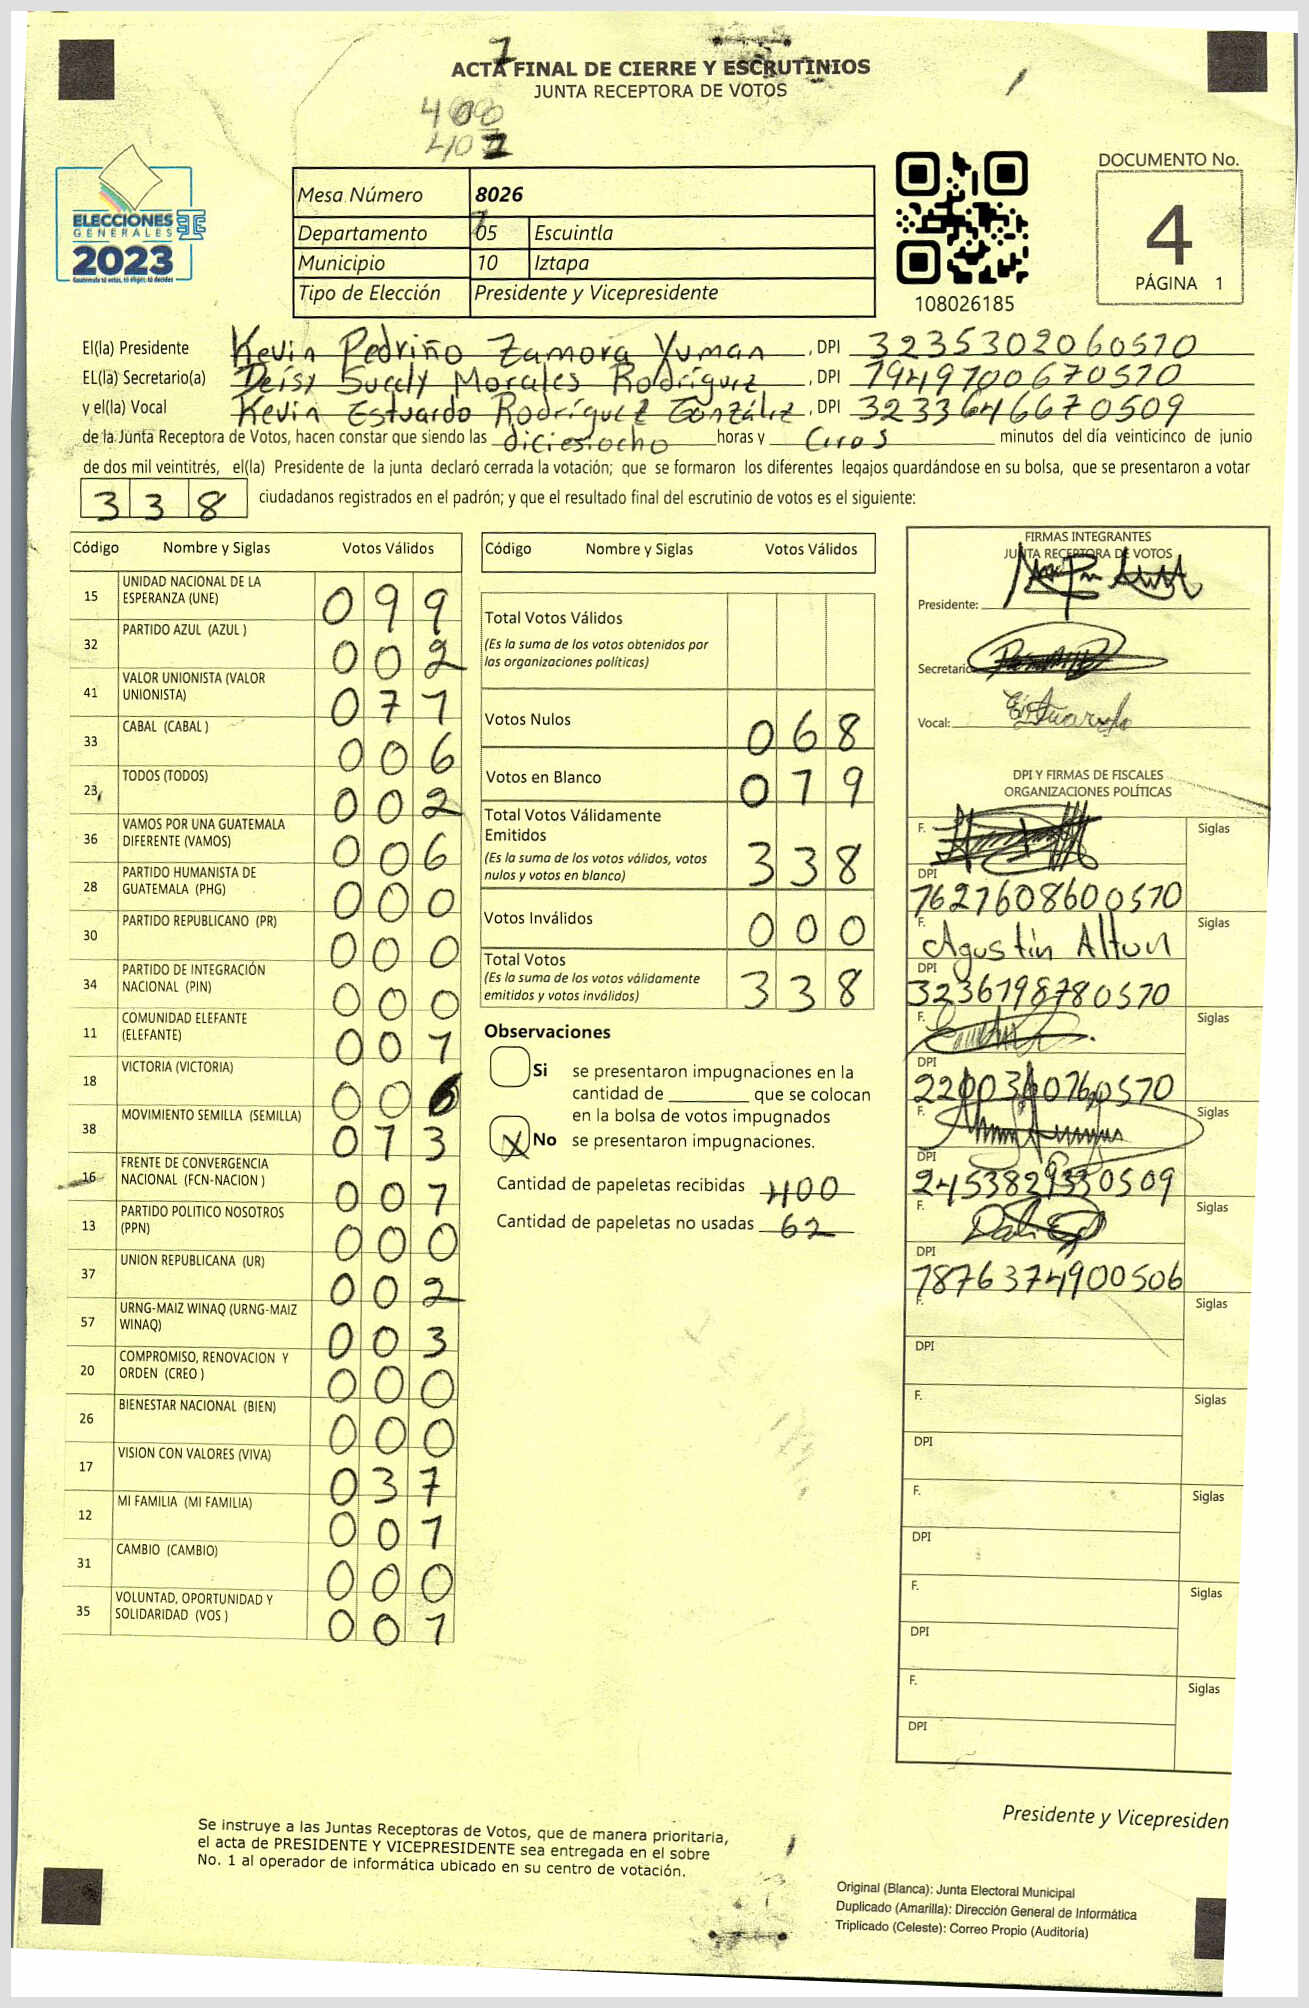 ACTA FINAL DE CIERRE Y ESCRUTINIOS
JUNTA RECEPTORA DE VOTOS
400
DOCUMENTO No.
4
PÁGINA 1
ELECCIONES
GENERALES
2023
Guatemala tú votas, tú eliges, tú decides
Mesa Número 8026
Departamento 05 Escuintla
Municipio 10 Iztapa
Tipo de Elección Presidente y Vicepresidente
108026185
El(la) Presidente Kevin Pedriño Zamora Yuman , DPI 3235302060510
EL(la) Secretario(a) Deisy Sucely Morales Rodríguez , DPI 1949100670510
y el(la) Vocal Kevin Estuardo Rodríguez González , DPI 3233646670509
de la Junta Receptora de Votos, hacen constar que siendo las diciesiocho horas y ceros minutos del día veinticinco de junio
de dos mil veintitrés, el(la) Presidente de la junta declaró cerrada la votación; que se formaron los diferentes legajos guardándose en su bolsa, que se presentaron a votar
338 ciudadanos registrados en el padrón; y que el resultado final del escrutinio de votos es el siguiente:
Código Nombre y Siglas Votos Válidos
15 UNIDAD NACIONAL DE LA ESPERANZA (UNE) 099
32 PARTIDO AZUL (AZUL ) 002
41 VALOR UNIONISTA (VALOR UNIONISTA) 071
33 CABAL (CABAL ) 006
23 TODOS (TODOS) 002
36 VAMOS POR UNA GUATEMALA DIFERENTE (VAMOS) 006
28 PARTIDO HUMANISTA DE GUATEMALA (PHG) 000
30 PARTIDO REPUBLICANO (PR) 000
34 PARTIDO DE INTEGRACIÓN NACIONAL (PIN) 000
11 COMUNIDAD ELEFANTE (ELEFANTE) 001
18 VICTORIA (VICTORIA) 006
38 MOVIMIENTO SEMILLA (SEMILLA) 013
16 FRENTE DE CONVERGENCIA NACIONAL (FCN-NACION ) 001
13 PARTIDO POLITICO NOSOTROS (PPN) 000
37 UNION REPUBLICANA (UR) 002
57 URNG-MAIZ WINAQ (URNG-MAIZ WINAQ) 003
20 COMPROMISO, RENOVACION Y ORDEN (CREO ) 000
26 BIENESTAR NACIONAL (BIEN) 000
17 VISION CON VALORES (VIVA) 037
12 MI FAMILIA (MI FAMILIA) 001
31 CAMBIO (CAMBIO) 000
35 VOLUNTAD, OPORTUNIDAD Y SOLIDARIDAD (VOS ) 001
Código Nombre y Siglas Votos Válidos
Total Votos Válidos
(Es la suma de los votos obtenidos por
las organizaciones políticas)
Votos Nulos 068
Votos en Blanco 019
Total Votos Válidamente
Emitidos
(Es la suma de los votos válidos, votos
nulos y votos en blanco) 338
Votos Inválidos 000
Total Votos
(Es la suma de los votos válidamente
emitidos y votos inválidos) 338
Observaciones
Si se presentaron impugnaciones en la
cantidad de ________ que se colocan
en la bolsa de votos impugnados
X No se presentaron impugnaciones.
Cantidad de papeletas recibidas 400
Cantidad de papeletas no usadas 62
FIRMAS INTEGRANTES
JUNTA RECEPTORA DE VOTOS
Presidente:
Secretario
Vocal: Estuardo
DPI Y FIRMAS DE FISCALES
ORGANIZACIONES POLÍTICAS
F. Siglas
DPI
1627608600510
F. Agustin Altun Siglas
DPI
3236198780510
F. Siglas
DPI
2200360760510
F. Siglas
DPI
2453829330509
F. Siglas
DPI
1876374900506
F. Siglas
DPI
F. Siglas
DPI
F. Siglas
DPI
F. Siglas
DPI
F. Siglas
DPI
Presidente y Vicepresiden
Se instruye a las Juntas Receptoras de Votos, que de manera prioritaria,
el acta de PRESIDENTE Y VICEPRESIDENTE sea entregada en el sobre
No. 1 al operador de informática ubicado en su centro de votación.
Original (Blanca): Junta Electoral Municipal
Duplicado (Amarilla): Dirección General de Informática
Triplicado (Celeste): Correo Propio (Auditoría)